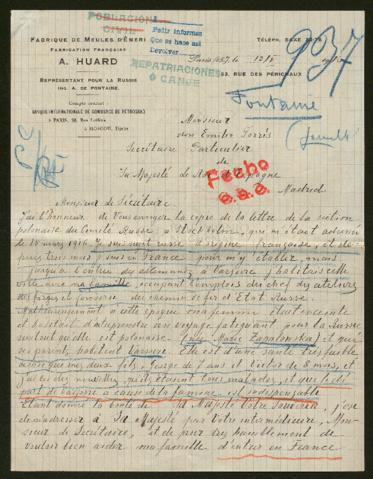 POBLACION CIVIL
Pedir informes
Que se haga así
Devolver
REPATRIACIONES
O CANJE
FABRIQUE DE MEULES D'ÉMERI
FABRICATION FRANÇAISE
A. HUARD
REPRÉSENTANT POUR LA RUSSIE
ING. A. DE FONTAINE.
Compte courant
BANQUE INTERNATIONALE DE COMMERCE DE PETROGRAD
à PARIS,
à MOSCOU,
TÉLÉPH. SAXE
Paris
53, RUE DES PÉRICHAUX
937
Fontaine
Monsieur
don Emilio Torrés
Secrétaire Particulier
de
Sa Majesté le Roi d'Espagne
Madrid
Fecho
Monsieur le Secrétaire
J'ai l'honneur de Vous envoyer la copie de la lettre de la section
polonaise du Comité Russe à Stockholm, qui m'étant adressé
de 18 mars 1916. Je suis sujet russe d'origine française, et de-
puis trois mois je suis en France pour m'y établir, mais
jusqu'à l'entrée des allemands à Varsovie j'habitais cette
ville avec ma famille, occupant l'emploi du chef des ateliers
des forges et fonderie du chemin de fer et Etat Russe.
Malheureusement à cette époque ma femme était enceinte
et hésitait d'entreprendre un voyage fatiguant pour la Russie
surtout qu'elle est polonaise (née Marie Zapalowska) et que
ses parents habitent Varsovie. Elle est d'une santé très faible
ainsi que mes deux fils, Serge de 7 ans et Victor de 8 mois, et
j'ai eu des nouvelles qu'ils étaient tous malades, et que le dé-
part de Varsovie à cause de la famine est indispensable
Etant donné la bonté de Sa Majesté Votre Souverain j'ose
demander à Sa Majesté par Votre intermédiaire, Mon-
sieur le Secrétaire, et de prier très humblement de
vouloir bien aider ma famille d'entrer en France